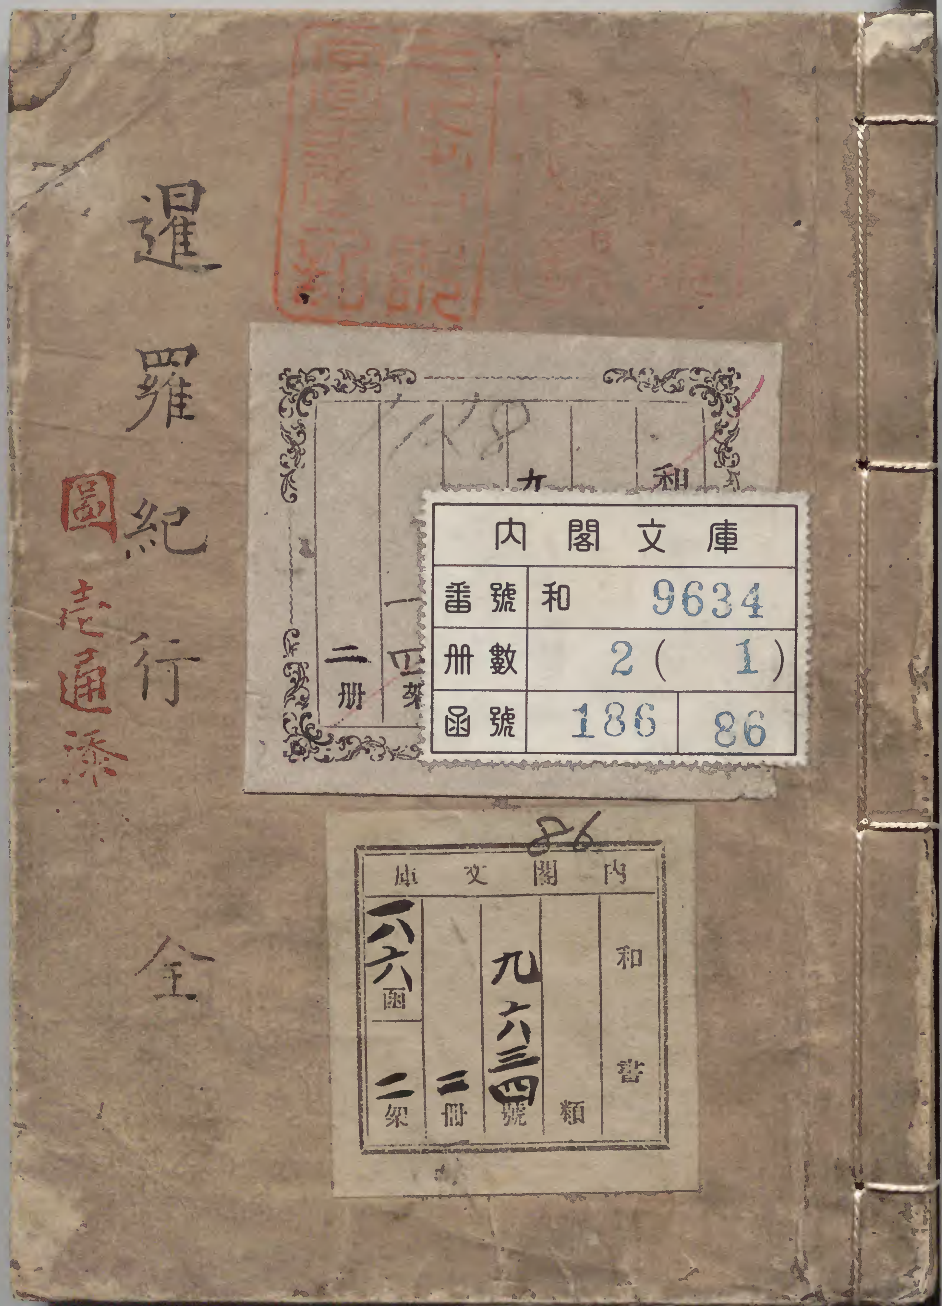 暹羅紀行 全
圖壱通添
和
九
一四架
二册
128
内閣文庫
番號 和 9634
册數 2(1)
函號 186 86
86
内閣文庫
和書
類
九六三四號
二冊
一八六函 二架